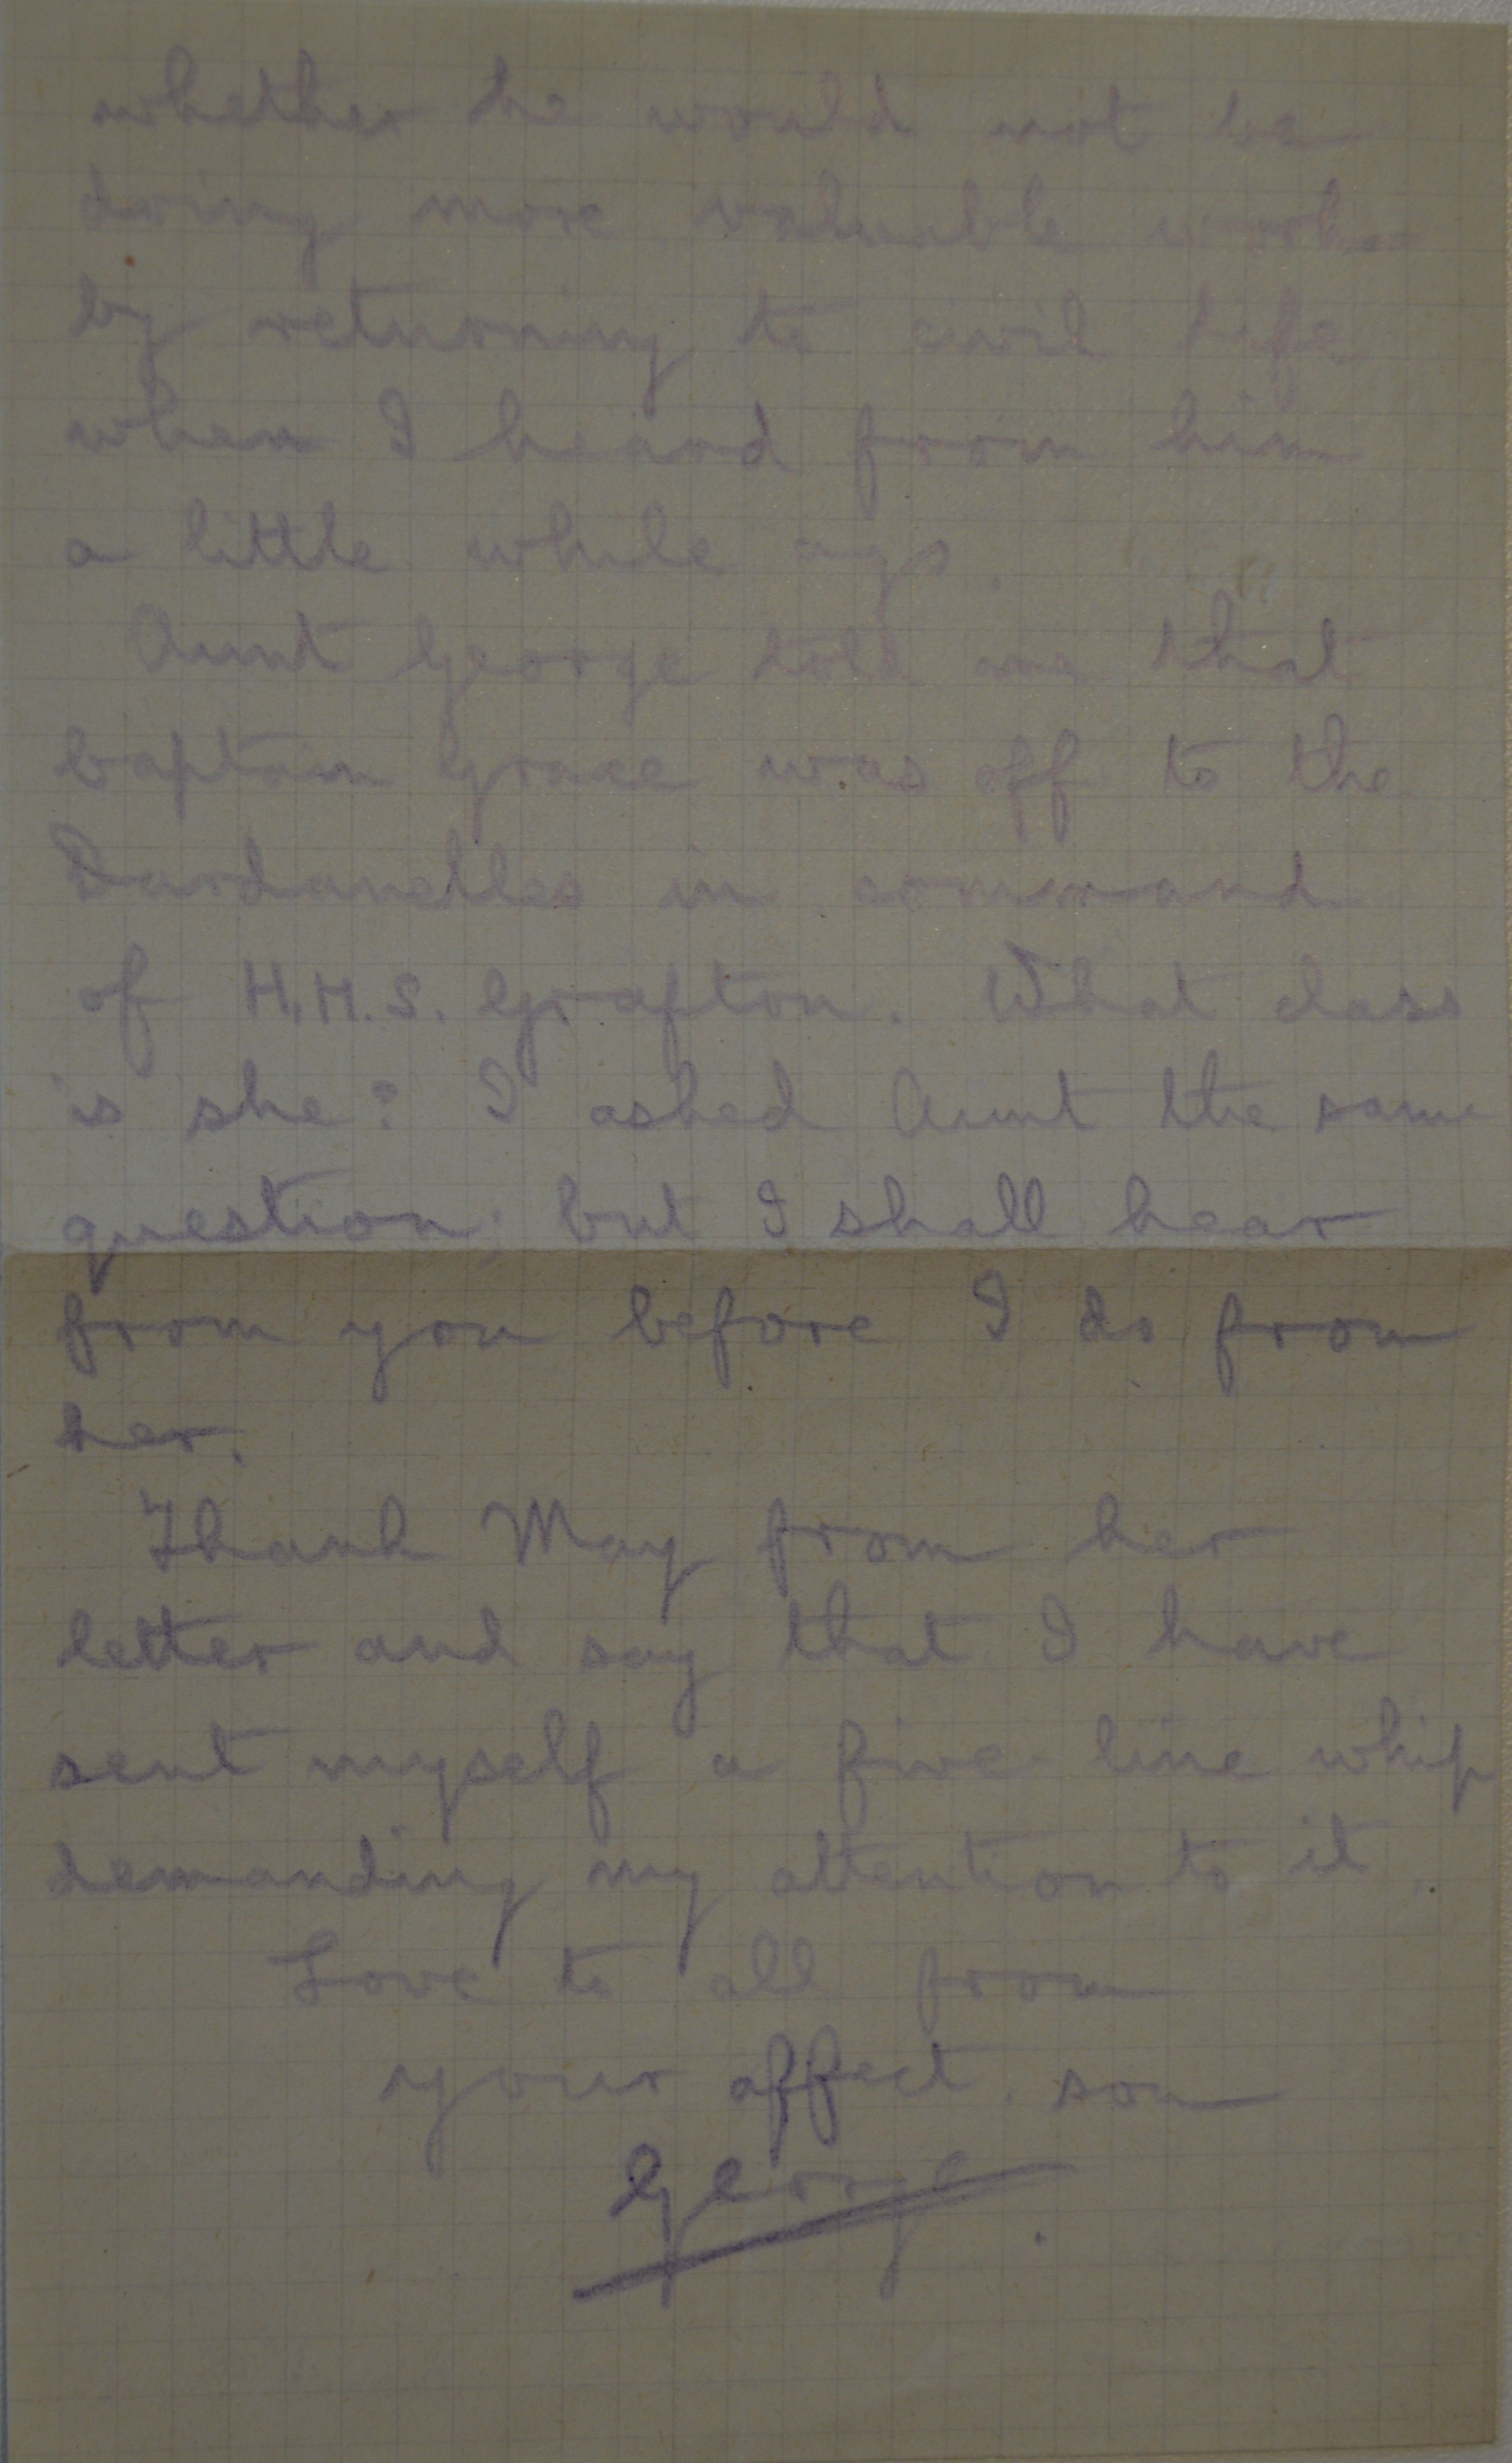 whether he would not be
doing more valuable work
by returning to civil life
when I heard from him
a little while ago.
Aunt George told me that
Captain Grace was off to the
Dardanelles in command
of H.M.S. Grafton. What class
is she? I asked Aunt the same
question; but I shall hear
from you before I do from
her.
Thank May from her
letter and say that I have
sent myself a five line whip
demanding my attention to it.
Love to all from
your affect. son
George.